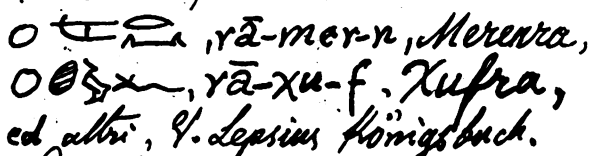 , rā-mer-n, Merenra,
, rā-χu-f, Xufra,
ed altri, V. Lepsius Königsbuch.